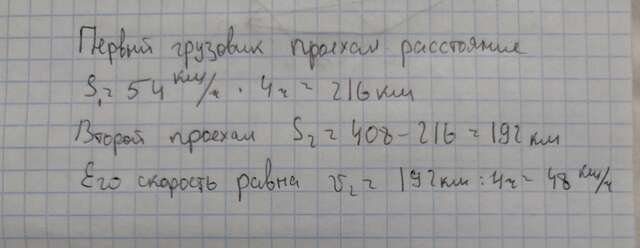 Первый грузовик проехал расстояние
S₁ = 54 км/ч · 4ч = 216 км
Второй проехал S₂ = 408 - 216 = 192 км
Его скорость равна v₂ = 192 км : 4ч = 48 км/ч